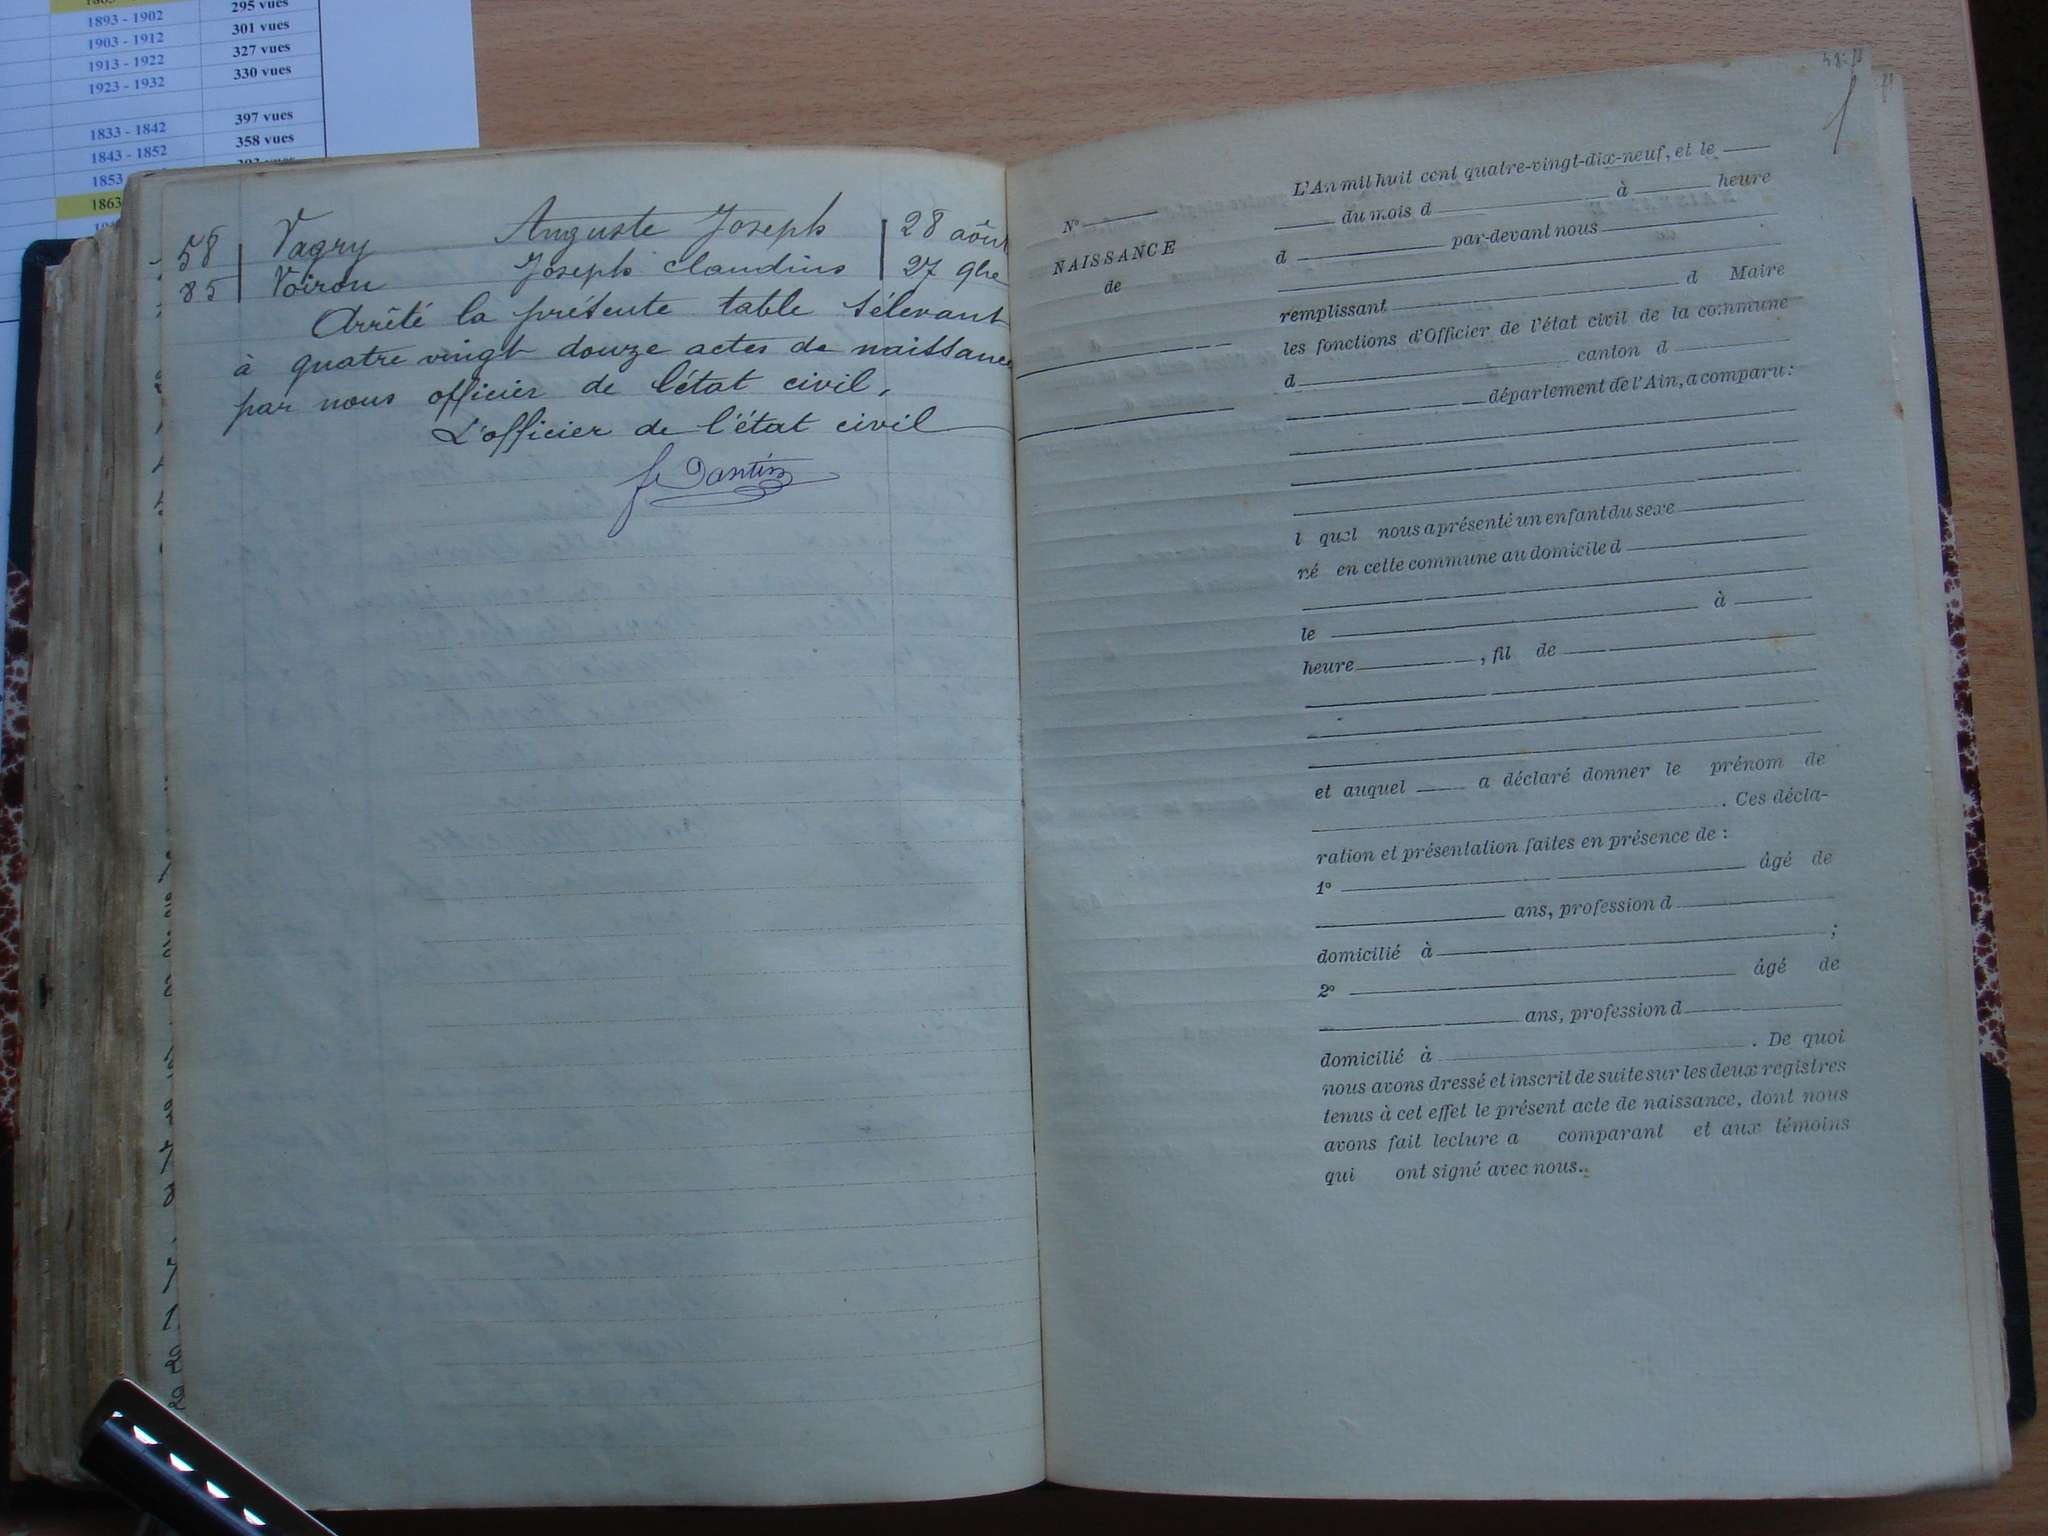 295 vues
1893 - 1902 301 vues
1903 - 1912 327 vues
1913 - 1922 330 vues
1923 - 1932
397 vues
1833 - 1842 358 vues
1843 - 1852
1853
1863
58 Vagry Auguste Joseph 28 aôut
85 Voiron Joseph Claudius 27 9bre
Arrêté la présente table s'élevant
à quatre vingt douze actes de naissance
par nous officier de l'état civil,
L'officier de l'état civil
N°
NAISSANCE
de
L'An mil huit cent quatre-vingt-dix-neuf, et le
du mois d à heure
d par-devant nous
remplissant d Maire
les fonctions d'Officier de l'état civil de la commune
d canton d
département de l'Ain, a comparu :
l quel nous a présenté un enfant du sexe
né en cette commune au domicile d
le à
heure , fil de
et auquel a déclaré donner le prénom de
. Ces décla-
ration et présentation faites en présence de :
1° âgé de
ans, profession d
domicilié à ;
2° âgé de
ans, profession d
domicilié à . De quoi
nous avons dressé et inscrit de suite sur les deux registres
tenus à cet effet le présent acte de naissance, dont nous
avons fait lecture a comparant et aux témoins
qui ont signé avec nous.